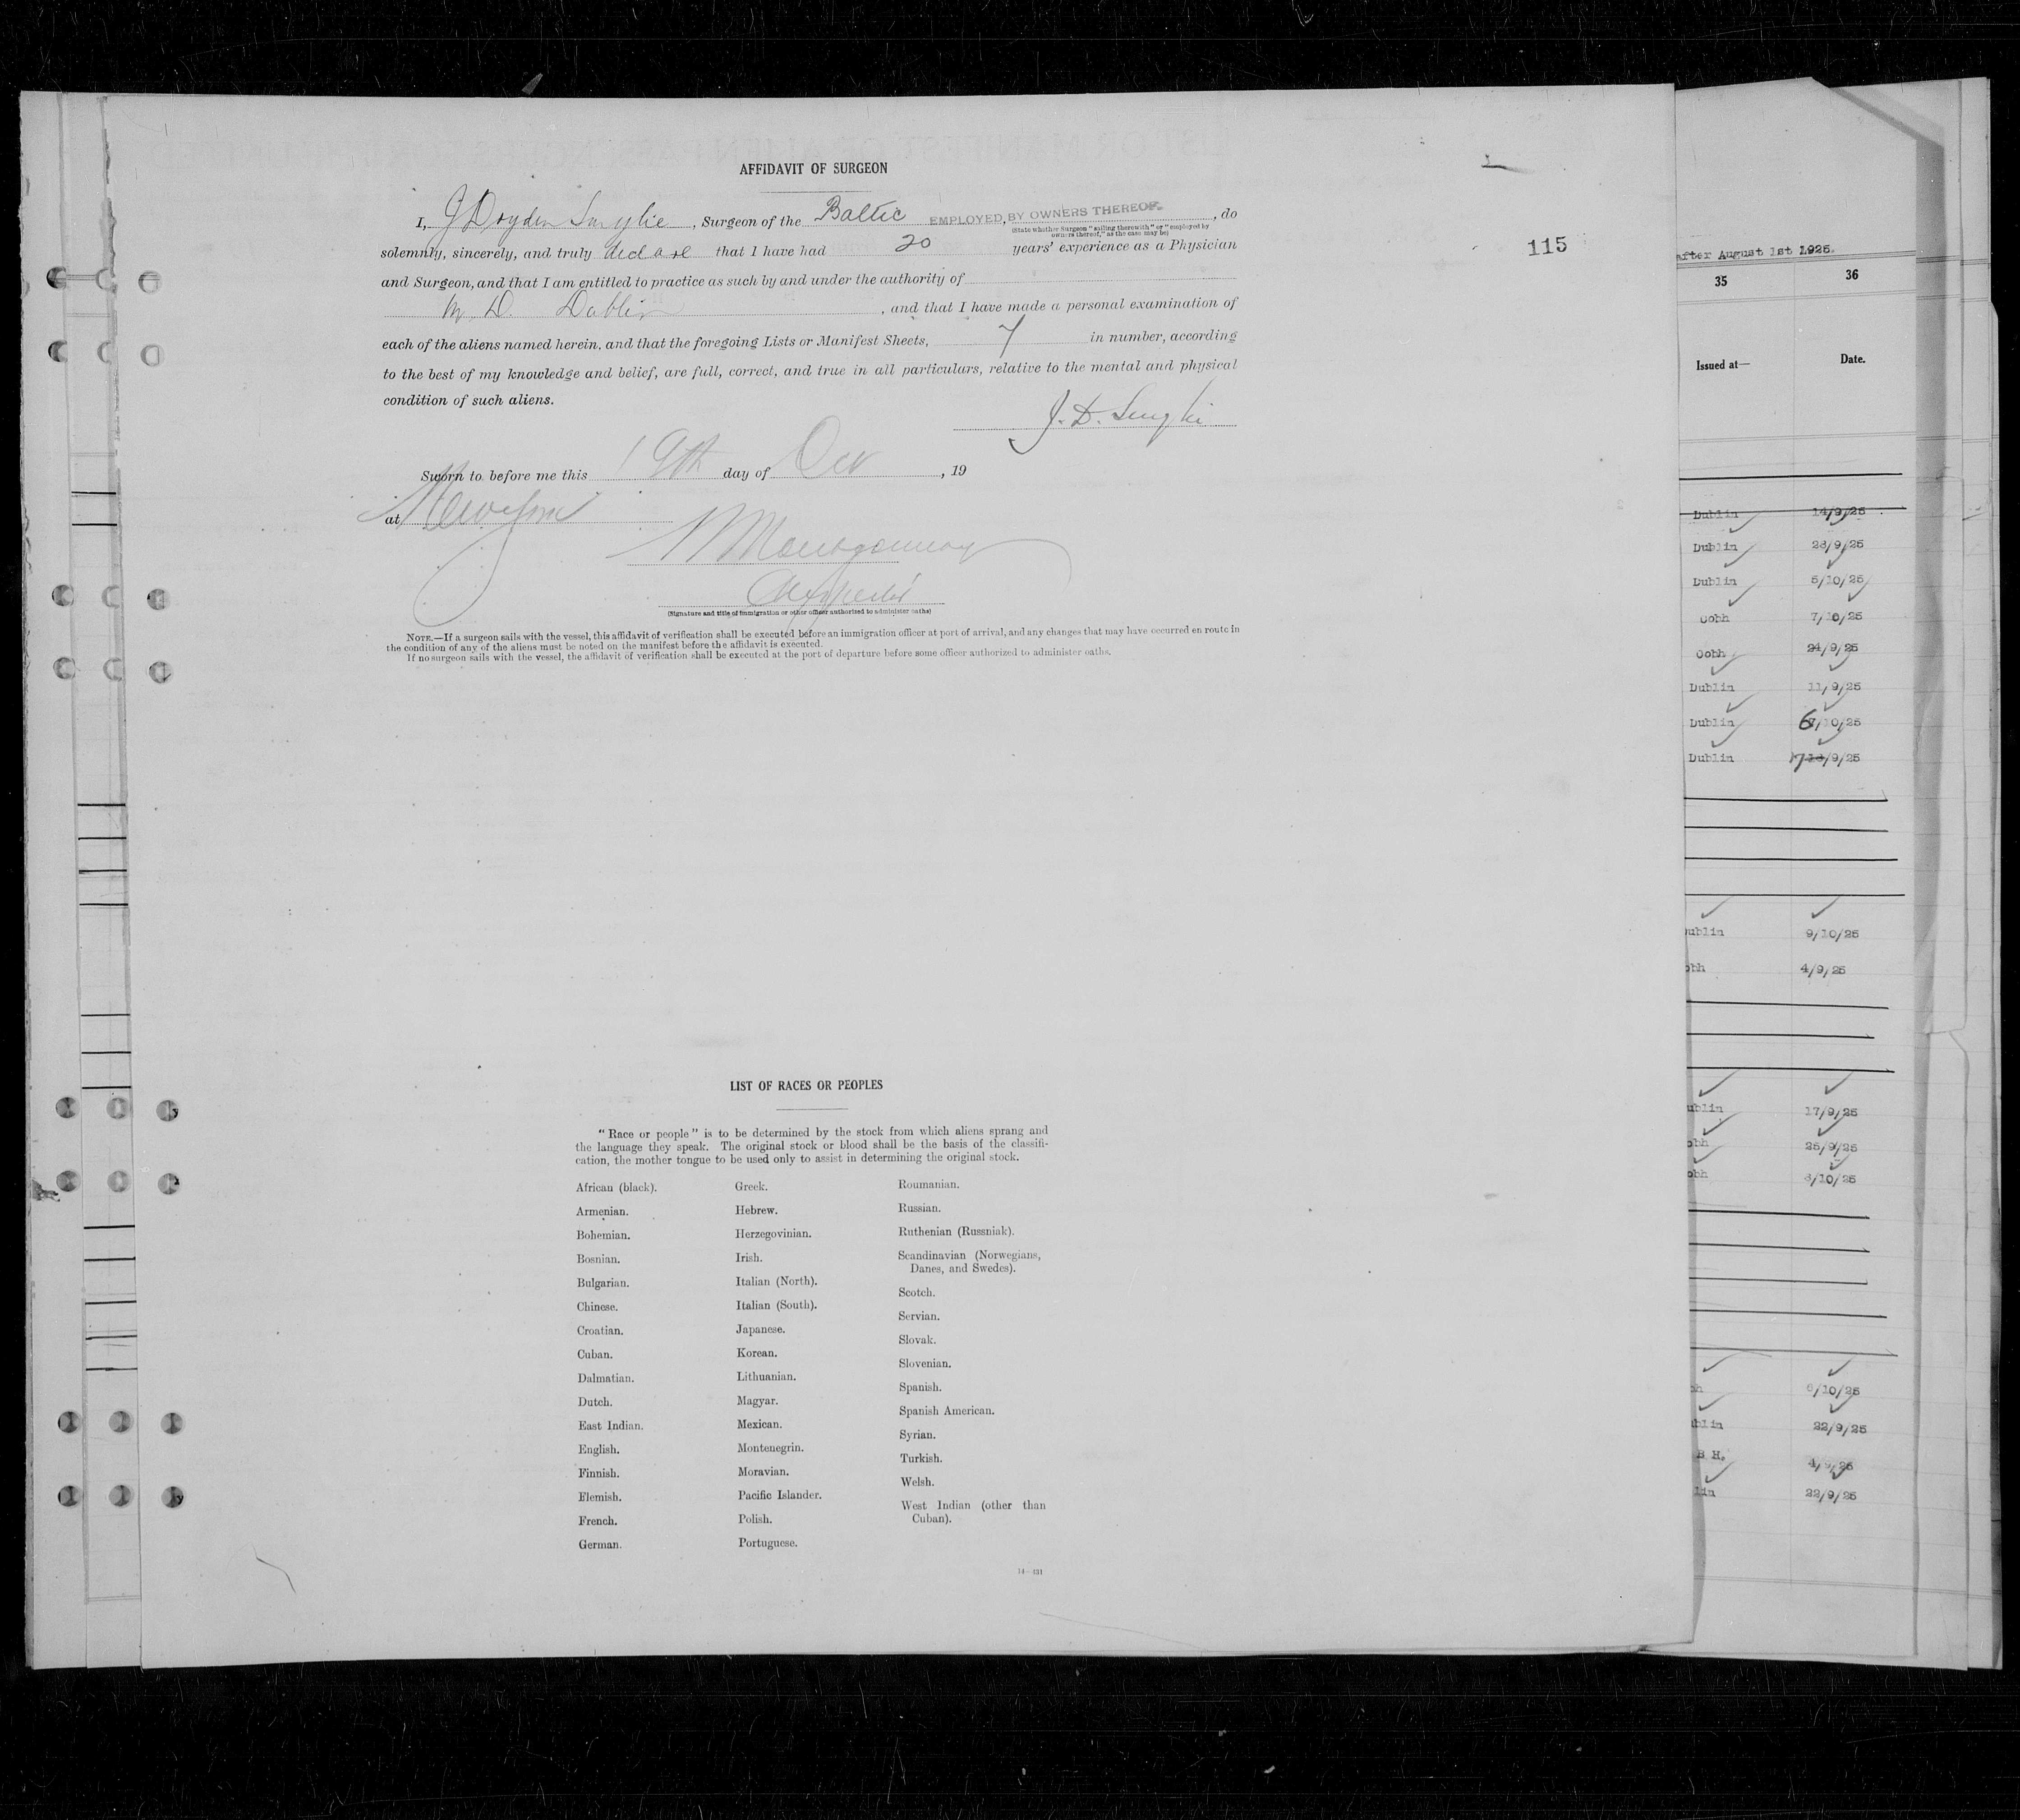 AFFIDAVIT OF SURGEON
I, J Dryden Smylie, Surgeon of the Baltic EMPLOYED BY OWNERS THEREOF., do
(State whether Surgeon "sailing therewith" or "employed by
owners thereof," as the case may be)
solemnly, sincerely, and truly declare that I have had 20 years' experience as a Physician
and Surgeon, and that I am entitled to practice as such by and under the authority of
M. D. Dublin, and that I have made a personal examination of
each of the aliens named herein, and that the foregoing Lists or Manifest Sheets, 7 in number, according
to the best of my knowledge and belief, are full, correct, and true in all particulars, relative to the mental and physical
condition of such aliens.
J. D. Smylie
Sworn to before me this 19th day of Oct, 19
at New York
Montgomery
(Signature and title of immigration or other officer authorized to administer oaths)
NOTE.—If a surgeon sails with the vessel, this affidavit of verification shall be executed before an immigration officer at port of arrival, and any changes that may have occurred en route in
the condition of any of the aliens must be noted on the manifest before the affidavit is executed.
If no surgeon sails with the vessel, the affidavit of verification shall be executed at the port of departure before some officer authorized to administer oaths.
LIST OF RACES OR PEOPLES
"Race or people" is to be determined by the stock from which aliens sprang and
the language they speak. The original stock or blood shall be the basis of the classifi-
cation, the mother tongue to be used only to assist in determining the original stock.
African (black).
Armenian.
Bohemian.
Bosnian.
Bulgarian.
Chinese.
Croatian.
Cuban.
Dalmatian.
Dutch.
East Indian.
English.
Finnish.
Flemish.
French.
German.
Greek.
Hebrew.
Herzegovinian.
Irish.
Italian (North).
Italian (South).
Japanese.
Korean.
Lithuanian.
Magyar.
Mexican.
Montenegrin.
Moravian.
Pacific Islander.
Polish.
Portuguese.
Roumanian.
Russian.
Ruthenian (Russniak).
Scandinavian (Norwegians,
Danes, and Swedes).
Scotch.
Servian.
Slovak.
Slovenian.
Spanish.
Spanish American.
Syrian.
Turkish.
Welsh.
West Indian (other than
Cuban).
14—431
115
after August 1st 1925.
35 36
Issued at— Date.
Dublin 14/9/25
Dublin 28/9/25
Dublin 5/10/25
Cobh 7/10/25
Cobh 21/9/25
Dublin 11/9/25
Dublin 6/10/25
Dublin 17/9/25
ublin 9/10/25
obh 4/9/25
ublin 17/9/25
obh 25/9/25
obh /10/25
bh 6/10/25
ublin 22/9/25
B H. 4/9/25
lin 22/9/25